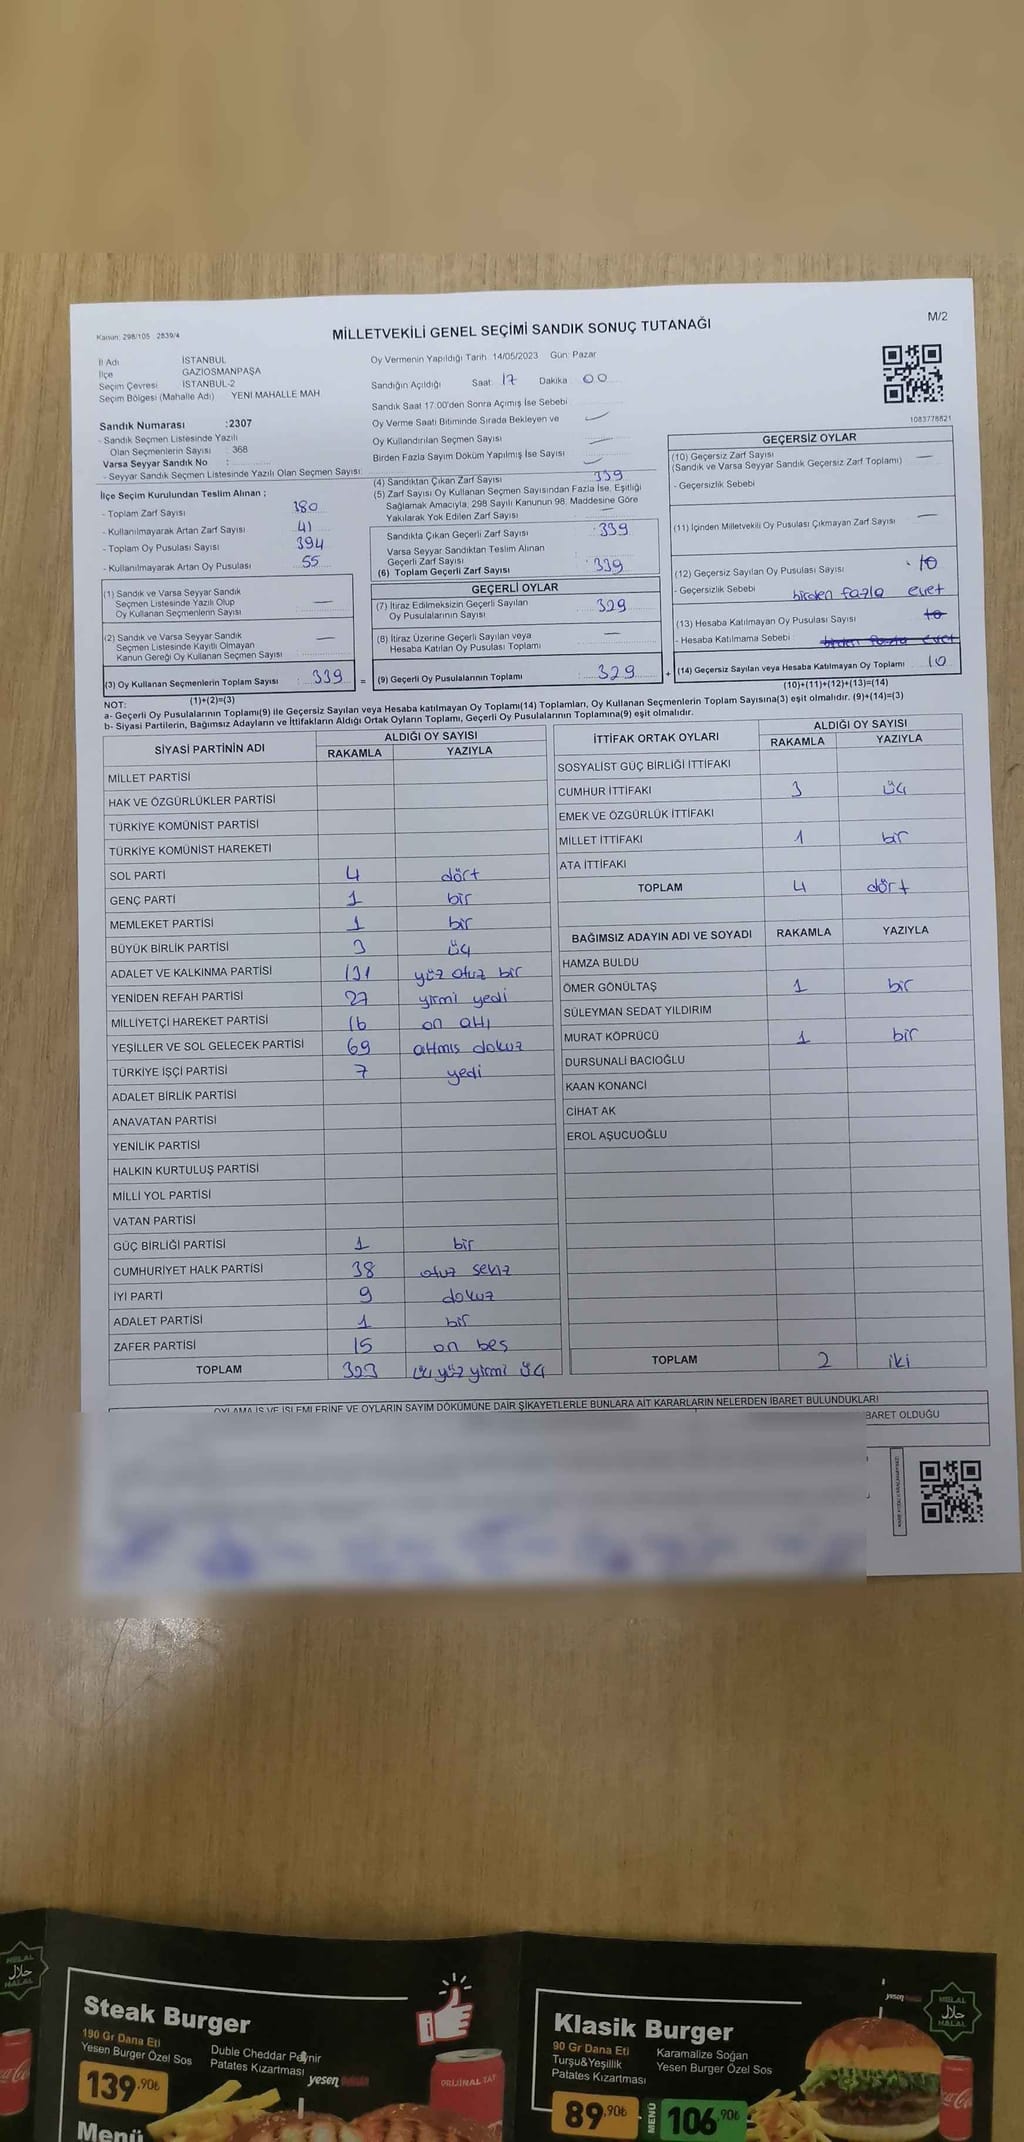 Kanun: 298/105 2839/4
MİLLETVEKİLİ GENEL SEÇİMİ SANDIK SONUÇ TUTANAĞI
M/2
İl Adı İSTANBUL
İlçe GAZİOSMANPAŞA
Seçim Çevresi İSTANBUL-2
Seçim Bölgesi (Mahalle Adı) YENİ MAHALLE MAH
Sandık Numarası :2307
- Sandık Seçmen Listesinde Yazılı
Olan Seçmenlerin Sayısı : 368
Varsa Seyyar Sandık No :
- Seyyar Sandık Seçmen Listesinde Yazılı Olan Seçmen Sayısı:
Oy Vermenin Yapıldığı Tarih 14/05/2023 Gün: Pazar
Sandığın Açıldığı Saat 17 Dakika 00
Sandık Saat 17:00'den Sonra Açımış İse Sebebi
Oy Verme Saati Bitiminde Sırada Bekleyen ve
Oy Kullandırılan Seçmen Sayısı
Birden Fazla Sayım Döküm Yapılmış İse Sayısı
1083778821
İlçe Seçim Kurulundan Teslim Alınan ;
- Toplam Zarf Sayısı 380
- Kullanılmayarak Artan Zarf Sayısı 41
- Toplam Oy Pusulası Sayısı 394
- Kullanılmayarak Artan Oy Pusulası 55
(1) Sandık ve Varsa Seyyar Sandık
Seçmen Listesinde Yazılı Olup
Oy Kullanan Seçmenlerin Sayısı —
(2) Sandık ve Varsa Seyyar Sandık
Seçmen Listesinde Kayıtlı Olmayan
Kanun Gereği Oy Kullanan Seçmen Sayısı —
(3) Oy Kullanan Seçmenlerin Toplam Sayısı : 339 =
(1)+(2)=(3)
(4) Sandıktan Çıkan Zarf Sayısı 339
(5) Zarf Sayısı Oy Kullanan Seçmen Sayısından Fazla İse, Eşitliği
Sağlamak Amacıyla, 298 Sayılı Kanunun 98. Maddesine Göre
Yakılarak Yok Edilen Zarf Sayısı
Sandıkta Çıkan Geçerli Zarf Sayısı : 339
Varsa Seyyar Sandıktan Teslim Alınan
Geçerli Zarf Sayısı
(6) Toplam Geçerli Zarf Sayısı : 339
GEÇERLİ OYLAR
(7) İtiraz Edilmeksizin Geçerli Sayılan
Oy Pusulalarının Sayısı 329
(8) İtiraz Üzerine Geçerli Sayılan veya
Hesaba Katılan Oy Pusulası Toplamı —
(9) Geçerli Oy Pusulalarının Toplamı : 329 +
GEÇERSİZ OYLAR
(10) Geçersiz Zarf Sayısı
(Sandık ve Varsa Seyyar Sandık Geçersiz Zarf Toplamı) —
- Geçersizlik Sebebi
(11) İçinden Milletvekili Oy Pusulası Çıkmayan Zarf Sayısı —
(12) Geçersiz Sayılan Oy Pusulası Sayısı : 10
- Geçersizlik Sebebi birden fazla evet
(13) Hesaba Katılmayan Oy Pusulası Sayısı 10
- Hesaba Katılmama Sebebi : birden fazla evet
(14) Geçersiz Sayılan veya Hesaba Katılmayan Oy Toplamı 10
(10)+(11)+(12)+(13)=(14)
NOT:
a- Geçerli Oy Pusulalarının Toplamı(9) ile Geçersiz Sayılan veya Hesaba katılmayan Oy Toplamı(14) Toplamları, Oy Kullanan Seçmenlerin Toplam Sayısına(3) eşit olmalıdır. (9)+(14)=(3)
b- Siyasi Partilerin, Bağımsız Adayların ve İttifakların Aldığı Ortak Oyların Toplamı, Geçerli Oy Pusulalarının Toplamına(9) eşit olmalıdır.
SİYASİ PARTİNİN ADI ALDIĞI OY SAYISI
RAKAMLA YAZIYLA
MİLLET PARTİSİ
HAK VE ÖZGÜRLÜKLER PARTİSİ
TÜRKİYE KOMÜNİST PARTİSİ
TÜRKİYE KOMÜNİST HAREKETİ
SOL PARTİ 4 dört
GENÇ PARTİ 1 bir
MEMLEKET PARTİSİ 1 bir
BÜYÜK BİRLİK PARTİSİ 3 üç
ADALET VE KALKINMA PARTİSİ 131 yüz otuz bir
YENİDEN REFAH PARTİSİ 27 yirmi yedi
MİLLİYETÇİ HAREKET PARTİSİ 16 on altı
YEŞİLLER VE SOL GELECEK PARTİSİ 69 altmış dokuz
TÜRKİYE İŞÇİ PARTİSİ 7 yedi
ADALET BİRLİK PARTİSİ
ANAVATAN PARTİSİ
YENİLİK PARTİSİ
HALKIN KURTULUŞ PARTİSİ
MİLLİ YOL PARTİSİ
VATAN PARTİSİ
GÜÇ BİRLİĞİ PARTİSİ 1 bir
CUMHURİYET HALK PARTİSİ 38 otuz sekiz
İYİ PARTİ 9 dokuz
ADALET PARTİSİ 1 bir
ZAFER PARTİSİ 15 on beş
TOPLAM 323 üç yüz yirmi üç
İTTİFAK ORTAK OYLARI ALDIĞI OY SAYISI
RAKAMLA YAZIYLA
SOSYALİST GÜÇ BİRLİĞİ İTTİFAKI
CUMHUR İTTİFAKI 3 üç
EMEK VE ÖZGÜRLÜK İTTİFAKI
MİLLET İTTİFAKI 1 bir
ATA İTTİFAKI
TOPLAM 4 dört
BAĞIMSIZ ADAYIN ADI VE SOYADI RAKAMLA YAZIYLA
HAMZA BULDU
ÖMER GÖNÜLTAŞ 1 bir
SÜLEYMAN SEDAT YILDIRIM
MURAT KÖPRÜCÜ 1 bir
DURSUNALİ BACIOĞLU
KAAN KONANCİ
CİHAT AK
EROL AŞUCUOĞLU
TOPLAM 2 iki
OYLAMA İŞ VE İŞLEMLERİNE VE OYLARIN SAYIM DÖKÜMÜNE DAİR ŞİKAYETLERLE BUNLARA AİT KARARLARIN NELERDEN İBARET BULUNDUKLARI
BARET OLDUĞU
HELAL
حلال
HALAL
Steak Burger
190 Gr Dana Eti
Yesen Burger Özel Sos
Duble Cheddar Peynir
Patates Kızartması
139,90₺
Menü
yesen
ORİJİNAL TAT
Klasik Burger
90 Gr Dana Eti
Turşu&Yeşillik
Patates Kızartması
Karamalize Soğan
Yesen Burger Özel Sos
89,90₺
MENÜ
106,90₺
yesen
HELAL
حلال
HALAL